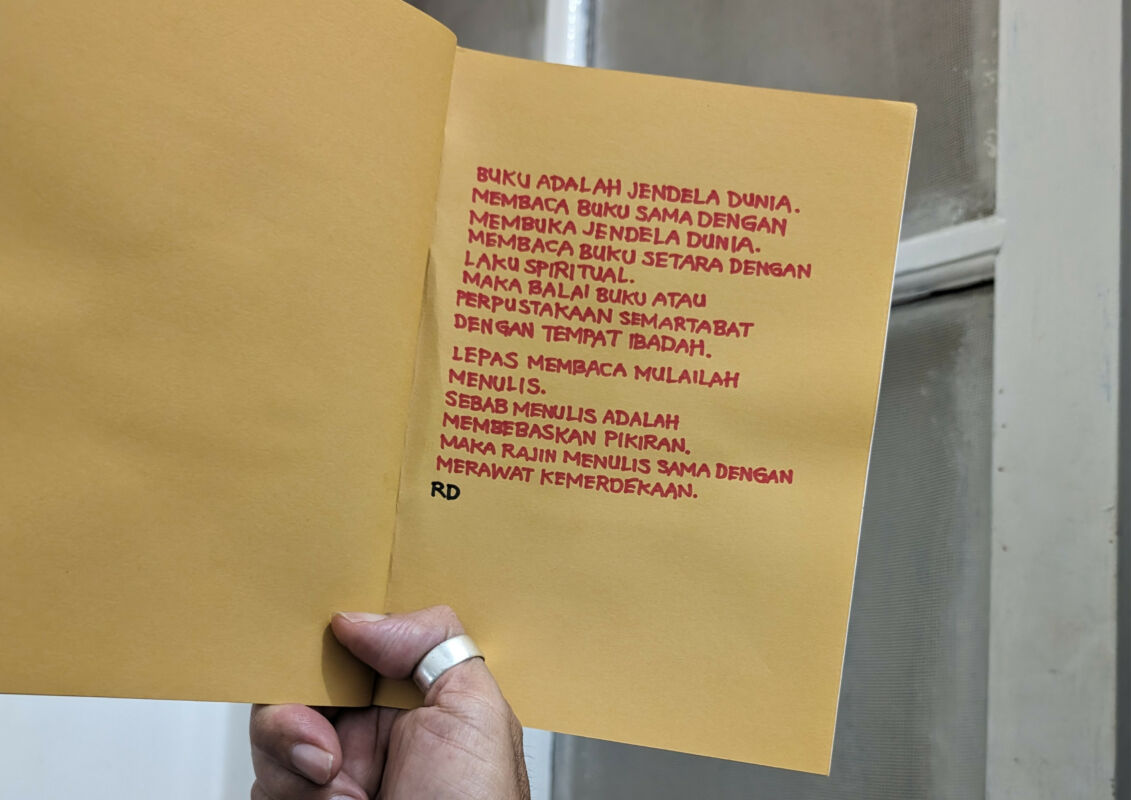 BUKU ADALAH JENDELA DUNIA.
MEMBACA BUKU SAMA DENGAN
MEMBUKA JENDELA DUNIA.
MEMBACA BUKU SETARA DENGAN
LAKU SPIRITUAL.
MAKA BALAI BUKU ATAU
PERPUSTAKAAN SEMARTABAT
DENGAN TEMPAT IBADAH.
LEPAS MEMBACA MULAILAH
MENULIS.
SEBAB MENULIS ADALAH
MEMBEBASKAN PIKIRAN.
MAKA RAJIN MENULIS SAMA DENGAN
MERAWAT KEMERDEKAAN.
RD